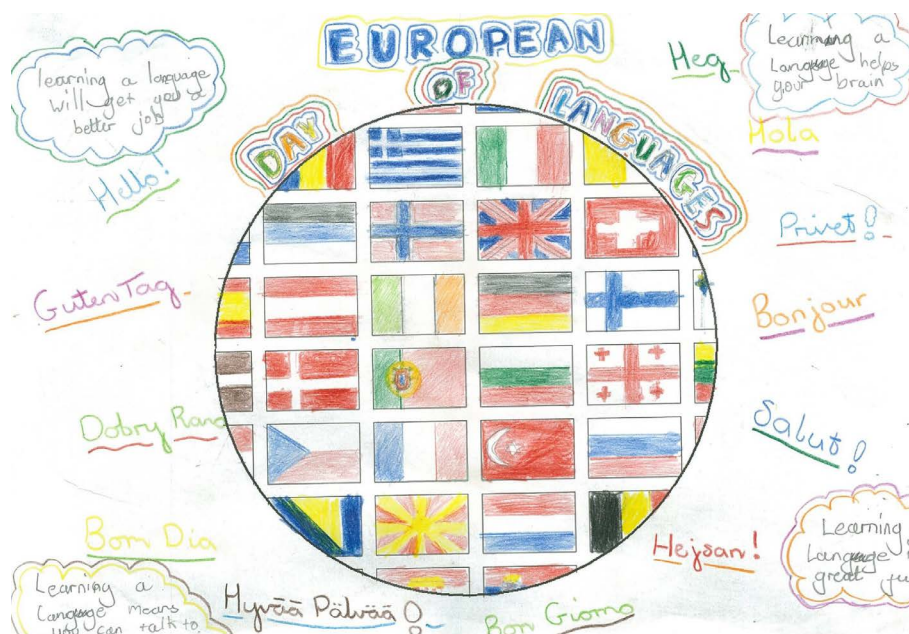 EUROPEAN
DAY OF LANGUAGES
learning a language
will get you a
better job
Hello!
Guten Tag
Dobry Rano
Bom Dia
Learning a
Language means
you can talk to
Hyvää Päivää!
Bon Giorno
Hej
Learning a
Language helps
your brain
Hola
Privet!
Bonjour
Salut!
Hejsan!
Learning
Language
great fu